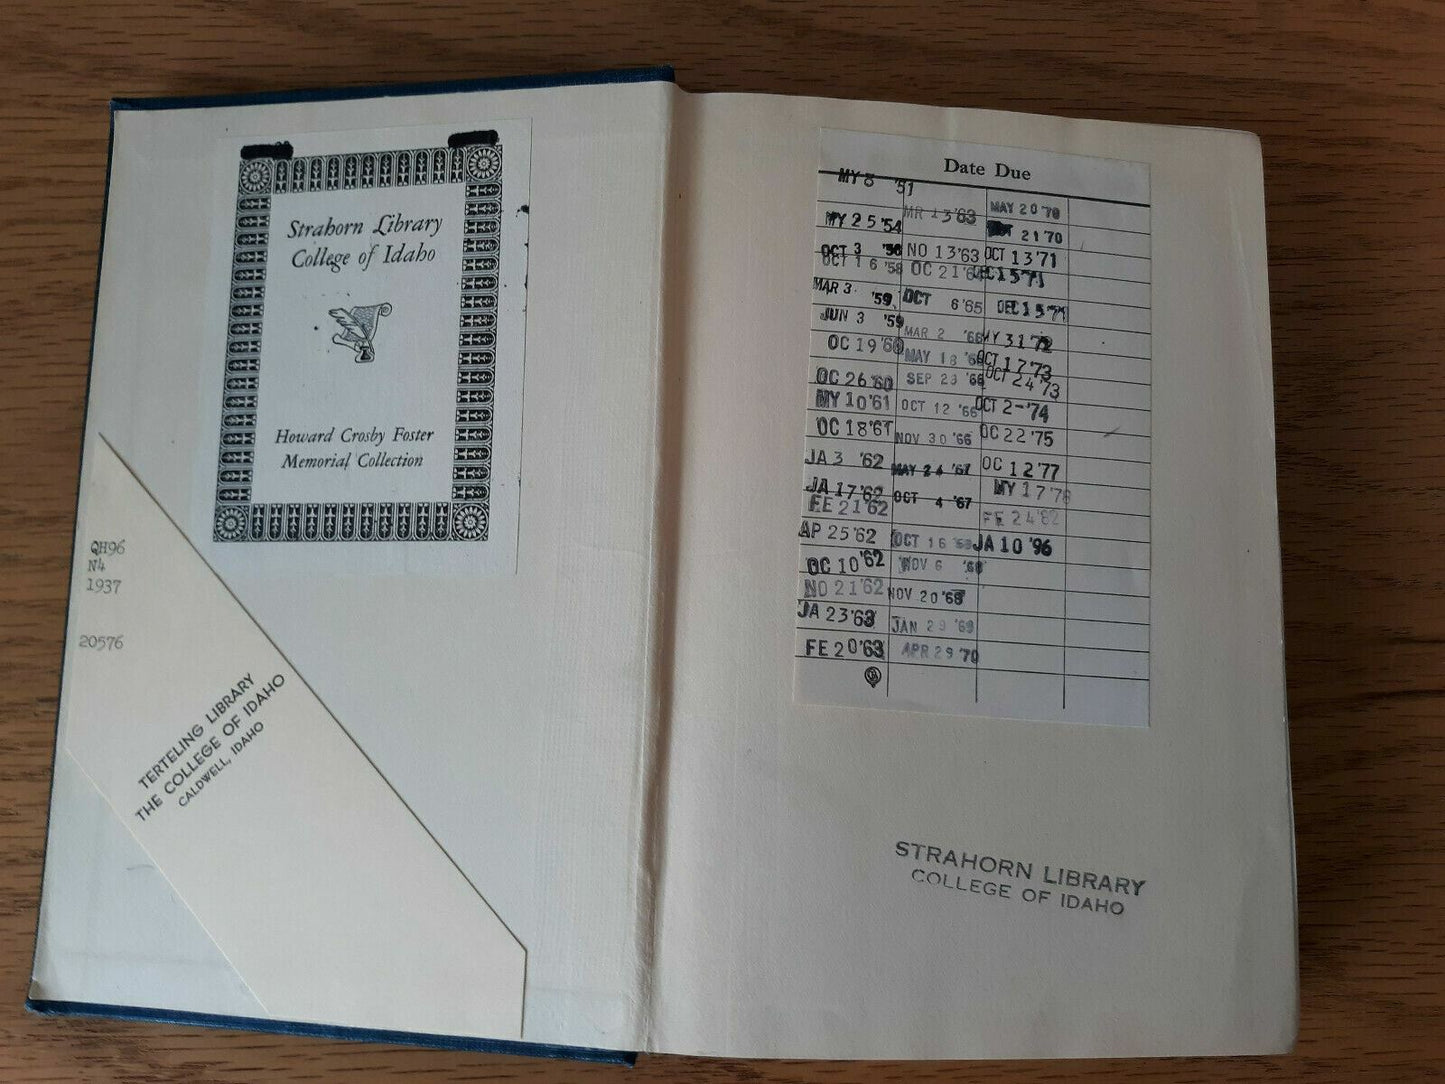 Strahorn Library
College of Idaho
Howard Crosby Foster
Memorial Collection
QH96
N4
1937
20576
TERTELING LIBRARY
THE COLLEGE OF IDAHO
CALDWELL, IDAHO
Date Due
MY 8 '51
MY 25 '54
OCT 3 '56
OCT 16 '58
MAR 3 '59
JUN 3 '59
OC 19 '60
OC 26 '60
MY 10 '61
OC 18 '61
JA 3 '62
JA 17 '62
FE 21 '62
AP 25 '62
OC 10 '62
NO 21 '62
JA 23 '63
FE 20 '63
MR 13 '63
NO 13 '63
OC 21 '64
OCT 6 '65
MAR 2 '66
MAY 18 '66
SEP 23 '66
OCT 12 '66
NOV 30 '66
MAY 24 '67
OCT 4 '67
OCT 16 '68
NOV 6 '68
NOV 20 '68
JAN 29 '69
APR 29 '70
MAY 20 '70
21 '70
OCT 13 '71
DEC 15 '71
DEC 15 '71
MY 31 '72
OCT 17 '73
OCT 24 '73
OCT 2 - '74
OC 22 '75
OC 12 '77
MY 17 '78
FE 24 '82
JA 10 '96
STRAHORN LIBRARY
COLLEGE OF IDAHO